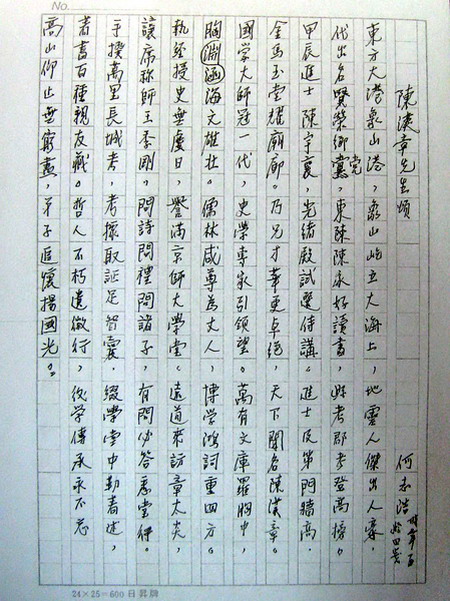 No.
陳漢章先生頌
何志浩
東方大港象山港，象山屹立大海上，地靈人傑出人豪，
代出名賢榮鄉黨，東陳陳家好讀書，縣考郡考登高榜。
甲辰進士陳宇襄，光緒殿試選侍講。進士及第門牆高，
金馬玉堂耀廟廊。乃兄才華更卓絕，天下聞名陳漢章。
國学大師冠一代，史學專家引領望。萬有文庫羅胸中，
胸涵淵海文雄壯。儒林咸尊為丈人，博学鴻詞重四方。
執经授史無虛日，譽滿京師大學堂。遠道來訪章太炎，
讓席称師王季剛，問詩問禮問諸子，有問必答
手撰萬里長城考，考據取証足智
，綴學堂中勤著述，
著書百種親友藏。哲人不朽遺徽行，後学傳承永不忘
高山仰止無窮盡，弟子追懷揚國光。
24×25=600